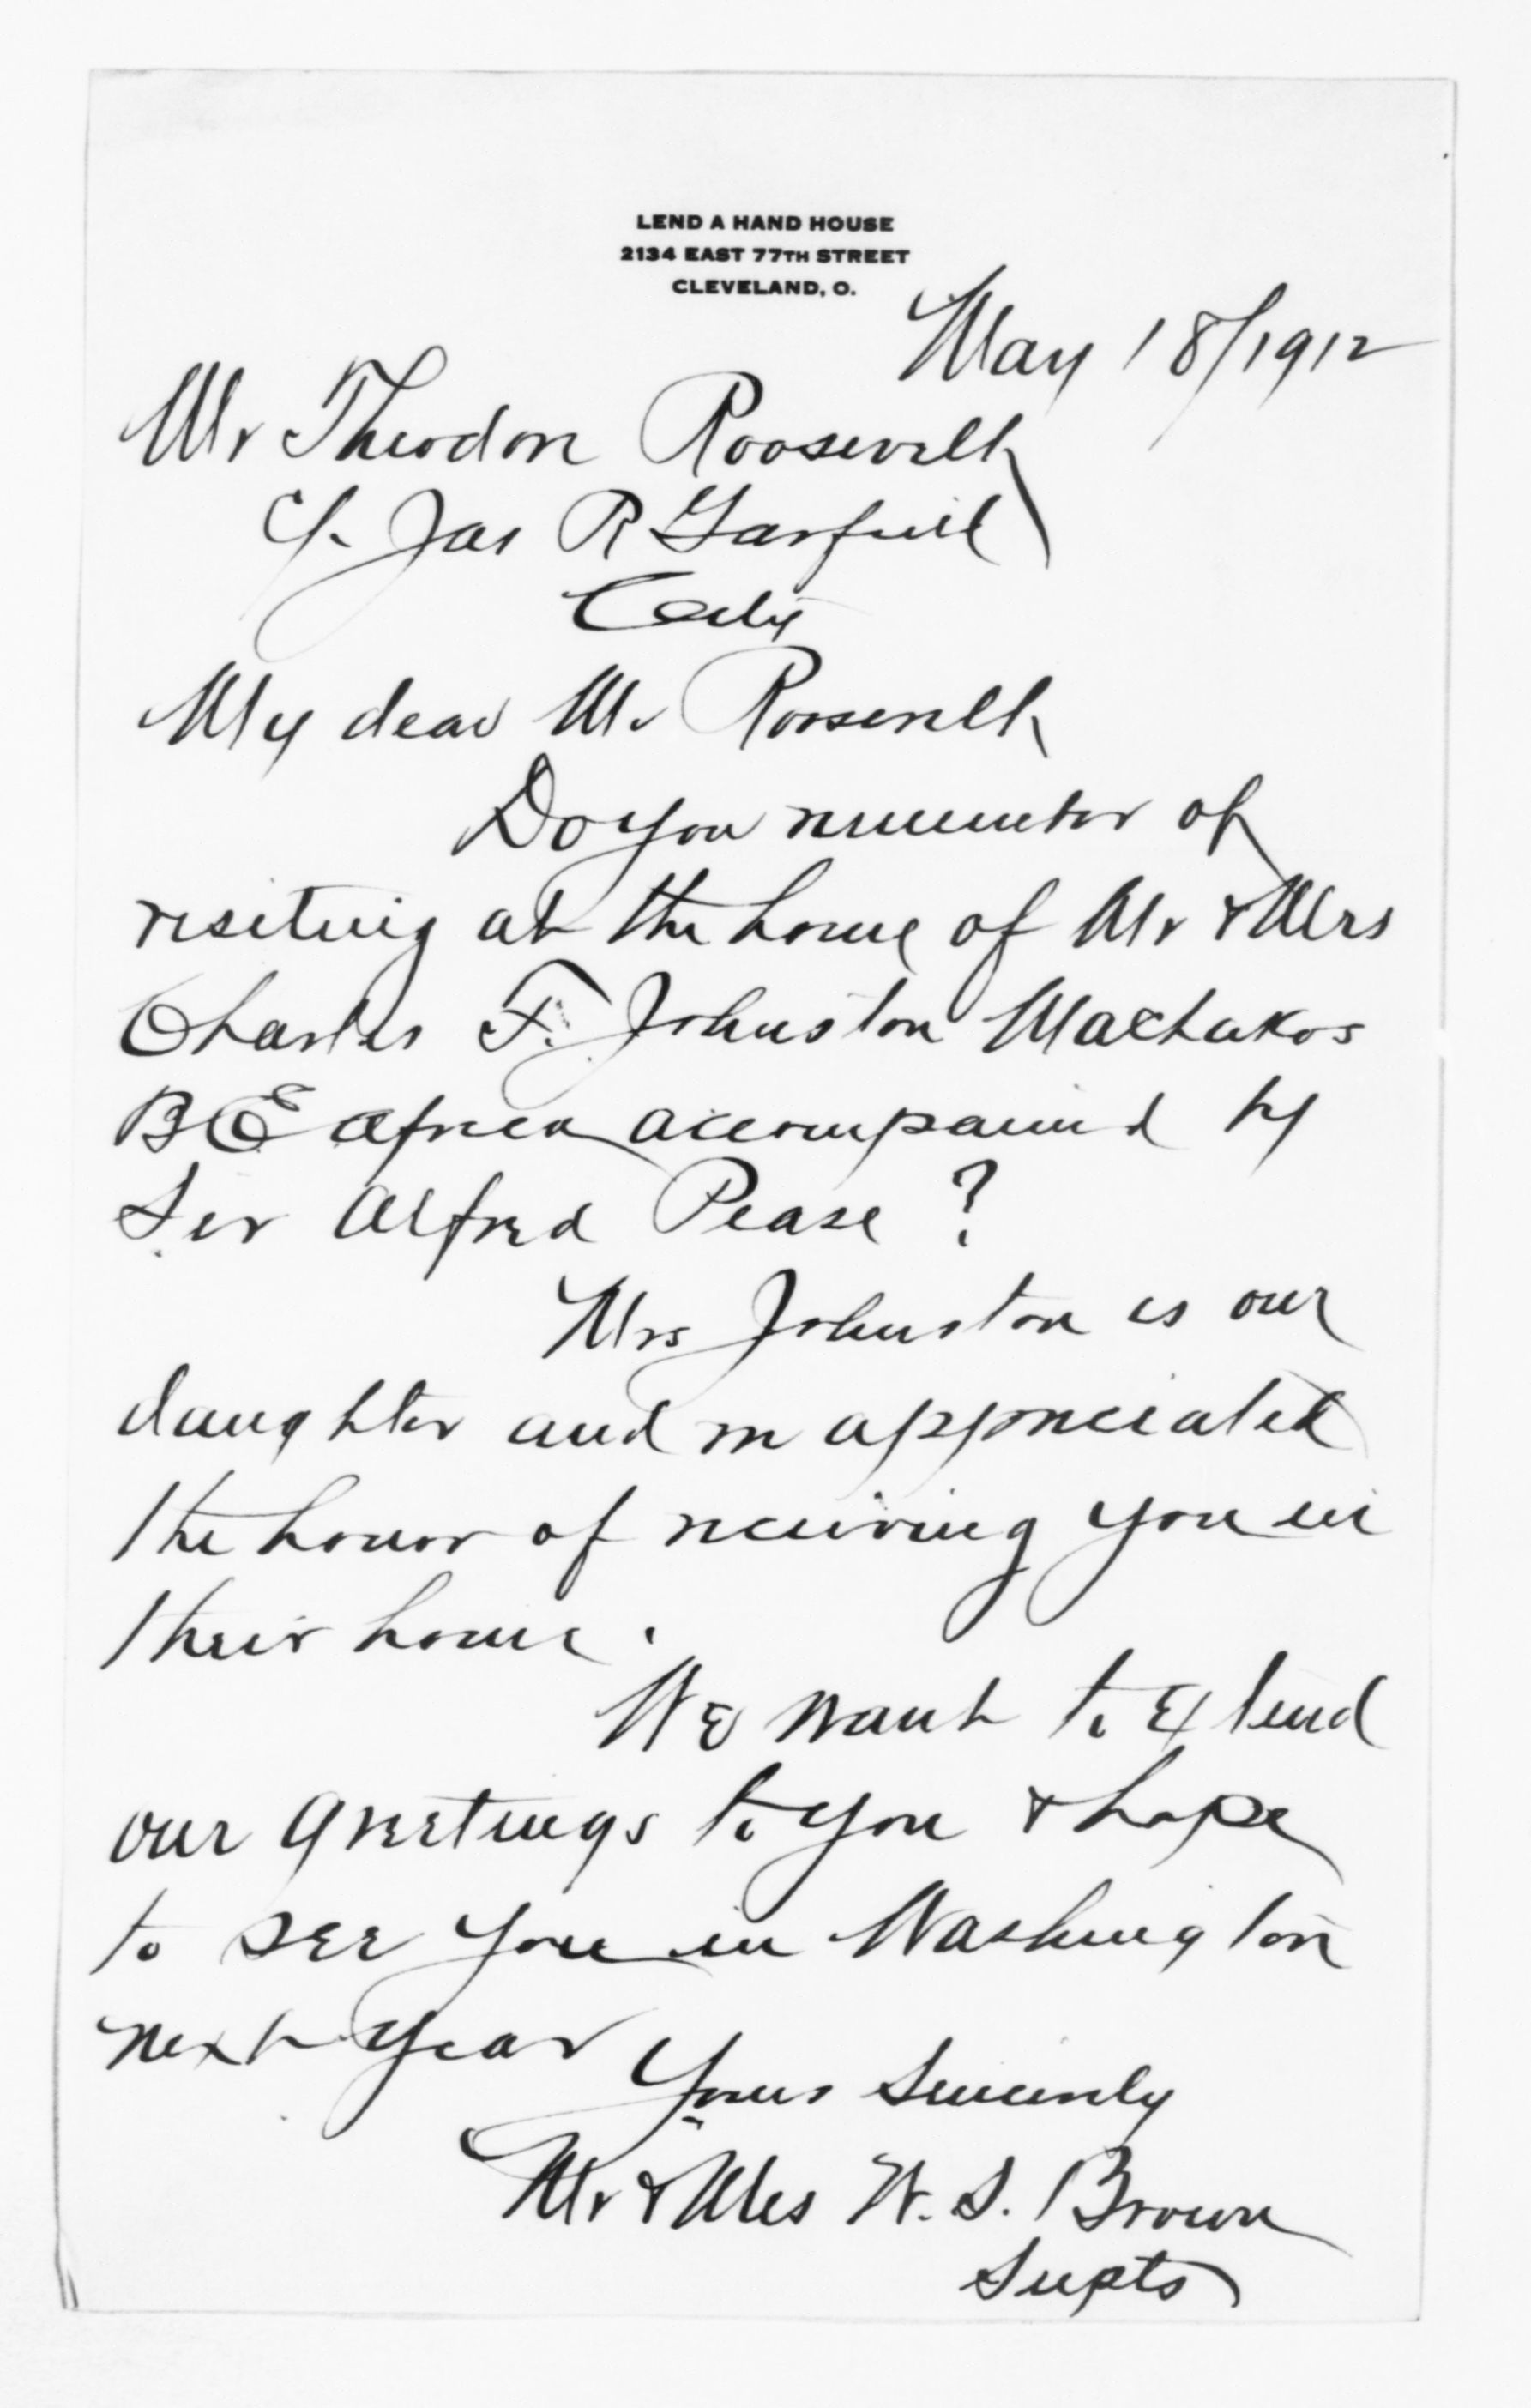 LEND A HAND HOUSE
2134 EAST 77TH STREET
CLEVELAND, O.
May 18/1912
Mr Theodore Roosevelt
c/o Jas R Garfield
City
My dear Mr Roosevelt
Do you remember of
visiting at the home of Mr & Mrs
Charles F. Johnston Machakos
B E Africa accompanied by
Sir Alfred Pease ?
Mrs Johnston is our
daughter and we appreciated
the honor of receiving you in
their home.
We want to extend
our greetings to you & hope
to see you in Washington
next year
Yours Sincerely
Mr & Mrs W. S. Brown
Supts